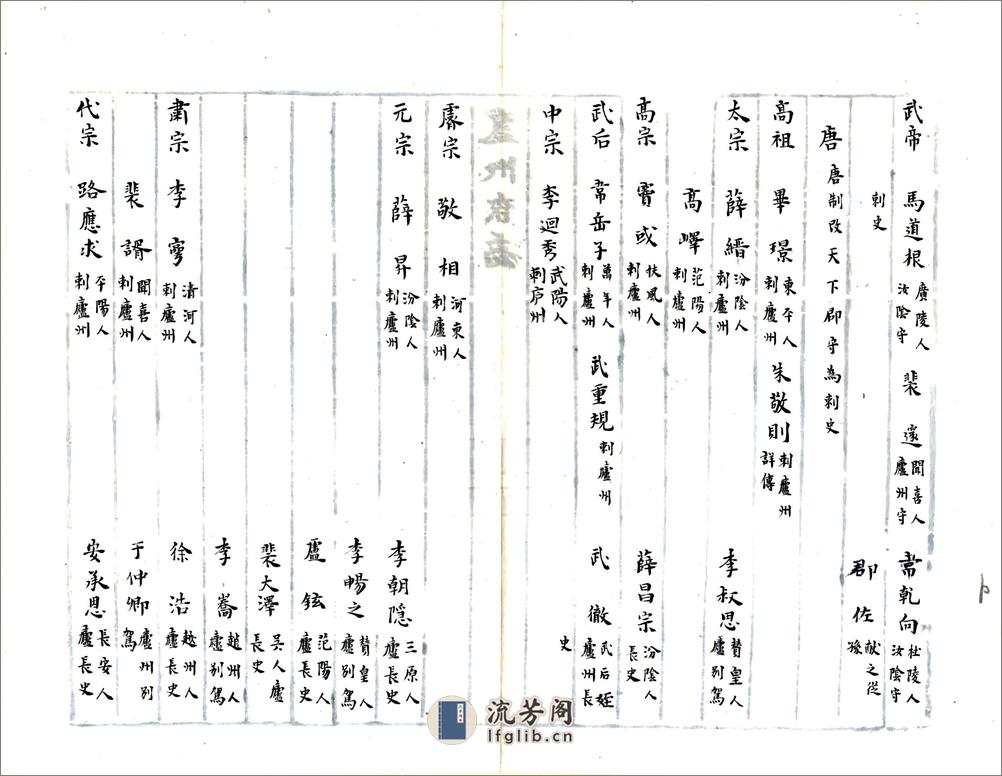 武帝 馬道根 廣陵人汝陰守 裴邃 聞喜人廬州守 韋乾向 杜陵人汝陰守
刺史 郡佐 獻之從豫
唐 唐制改天下郡守為刺史
高祖 畢璟 東平人刺廬州 朱敬則 刺廬州詳傳
太宗 薛縉 汾陰人刺廬州 李叔思 贊皇人廬別駕
高嶧 范陽人刺廬州
高宗 竇或 扶風人刺廬州 薛昌宗 汾陰人長史
武后 韋岳子 萬年人刺廬州 武重規 刺廬州 武徹 武后姪廬州長史
中宗 李迥秀 武陽人刺庐州
廬州府志
睿宗 敬相 河東人刺廬州
元宗 薛昇 汾陰人刺廬州 李朝隱 三原人廬長史
李暢之 贊皇人廬別駕
盧鉉 范陽人廬長史
裴大澤 吳人廬長史
李嶠 趙州人廬別駕
肅宗 李寧 清河人刺廬州 徐浩 越州人廬長史
裴諝 聞喜人刺廬州 于仲卿 廬州別駕
代宗 路應求 平陽人刺廬州 安承恩 長安人廬長史
流芳阁
lfglib.cn